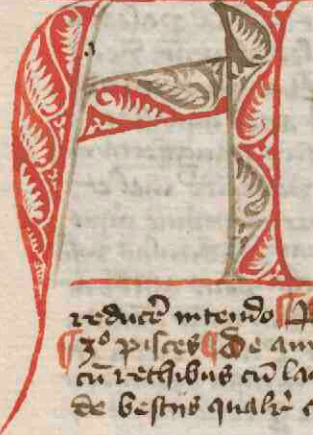 reducē intendo
¶ 3º pisces ¶ De
cū rethibus cū
de bestijs qualr̄